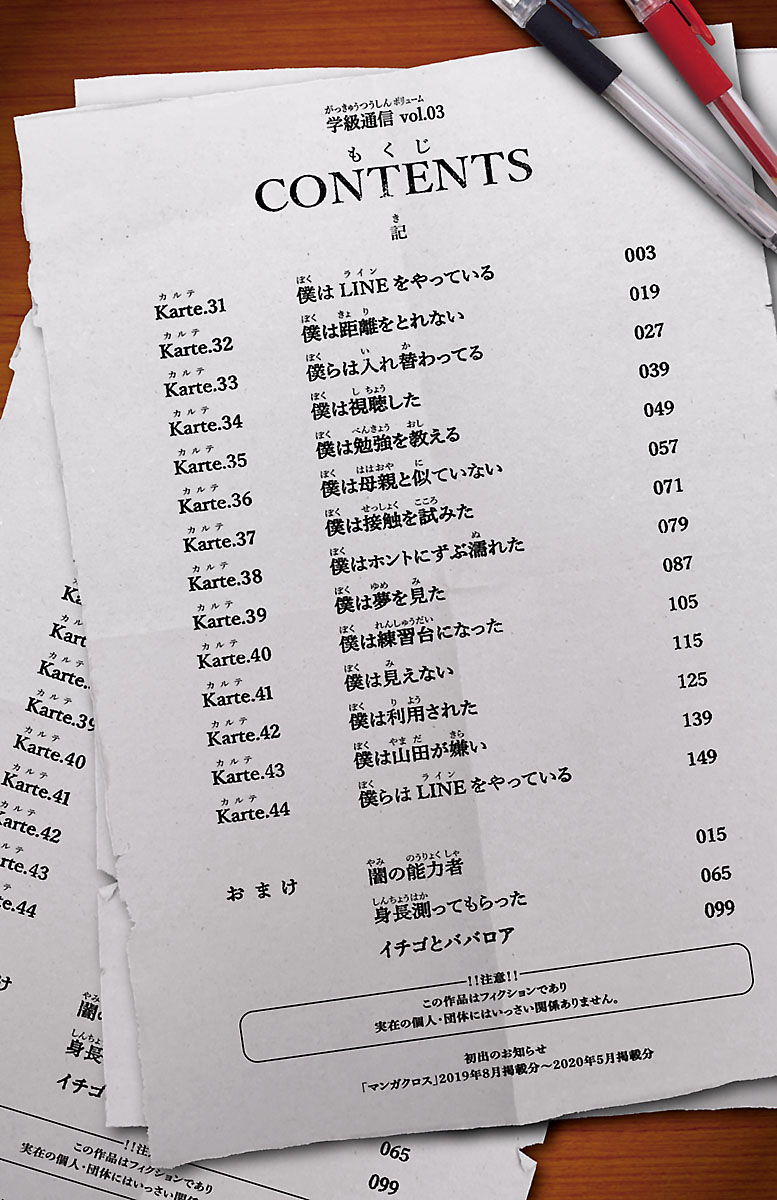 学級通信 vol.03
もくじ
CONTENTS
記
Karte.31 僕はLINEをやっている 003
Karte.32 僕は距離をとれない 019
Karte.33 僕らは入れ替わってる 027
Karte.34 僕は視聴した 039
Karte.35 僕は勉強を教える 049
Karte.36 僕は母親と似ていない 057
Karte.37 僕は接触を試みた 071
Karte.38 僕はホントにずぶ濡れた 079
Karte.39 僕は夢を見た 087
Karte.40 僕は練習台になった 105
Karte.41 僕は見えない 115
Karte.42 僕は利用された 125
Karte.43 僕は山田が嫌い 139
Karte.44 僕らはLINEをやっている 149
おまけ 闇の能力者 015
身長測ってもらった 065
イチゴとババロア 099
!!注意!!
この作品はフィクションであり
実在の個人・団体にはいっさい関係ありません。
初出のお知らせ
「マンガクロス」2019年8月掲載分〜2020年5月掲載分
Karte.39
Karte.40
Karte.41
Karte.42
rte.43
e.44
闇の
身長
イチゴ
065
099
!!注
この作品はフィクションであり
実在の個人・団体にはいっさい関係